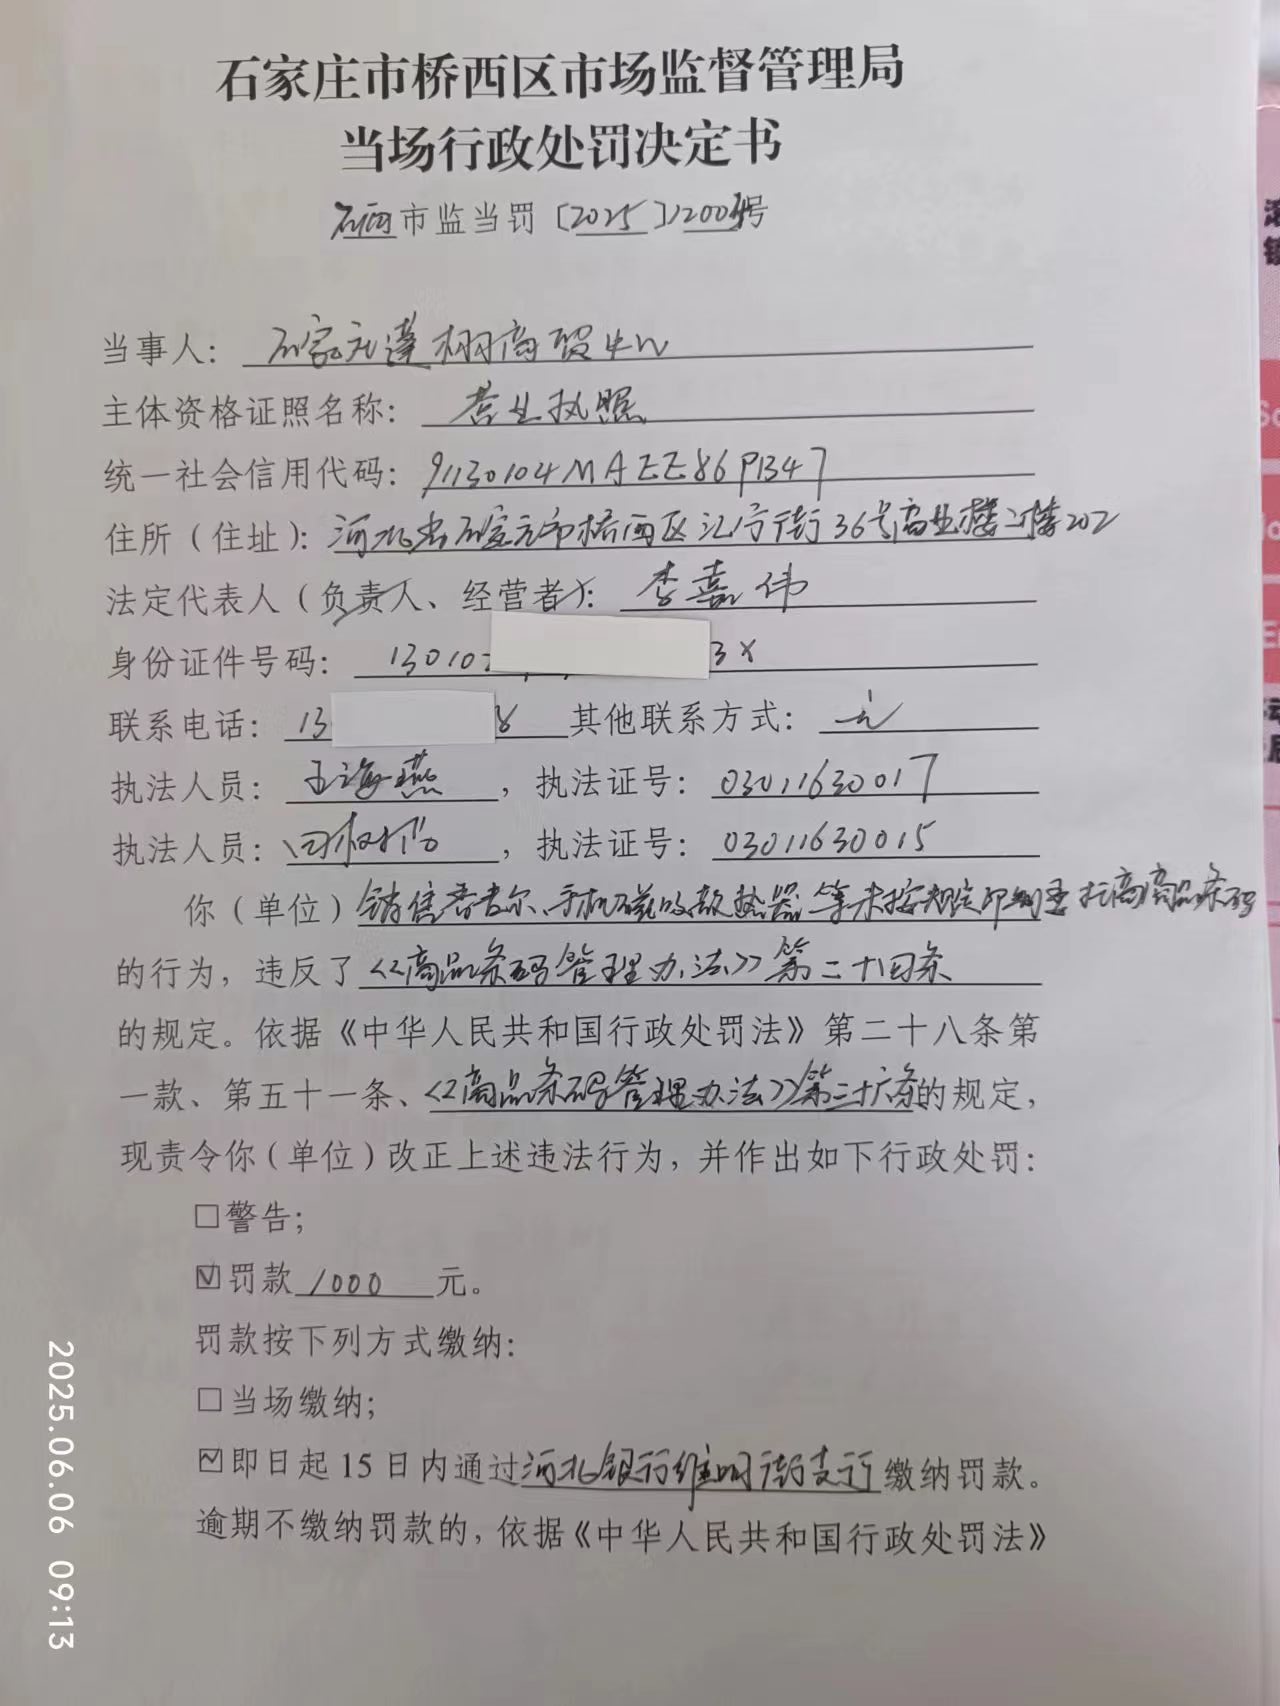 石家庄市桥西区市场监督管理局
当场行政处罚决定书
石西市监当罚〔2025〕12004号
当事人：石家庄蓬栩商贸中心
主体资格证照名称：营业执照
统一社会信用代码：91130104MAEE86P1347
住所（住址）：河北省石家庄市桥西区汇宁街36号商业楼二楼202
法定代表人（负责人、经营者）：李嘉伟
身份证件号码：13010 3X
联系电话：13 8 其他联系方式：无
执法人员：王海燕，执法证号：03011630017
执法人员：田，执法证号：03011630015
你（单位）销售香吉尔、手机磁吸散热器等未按规定印制 商品条码
的行为，违反了《商品条码管理办法》第二十四条
的规定。依据《中华人民共和国行政处罚法》第二十八条第
一款、第五十一条、《商品条码管理办法》第三十六条的规定，
现责令你（单位）改正上述违法行为，并作出如下行政处罚：
□警告；
☑罚款1000元。
罚款按下列方式缴纳：
□当场缴纳；
☑即日起15日内通过河北银行维明街支行缴纳罚款。
逾期不缴纳罚款的，依据《中华人民共和国行政处罚法》
2025.06.06 09:13